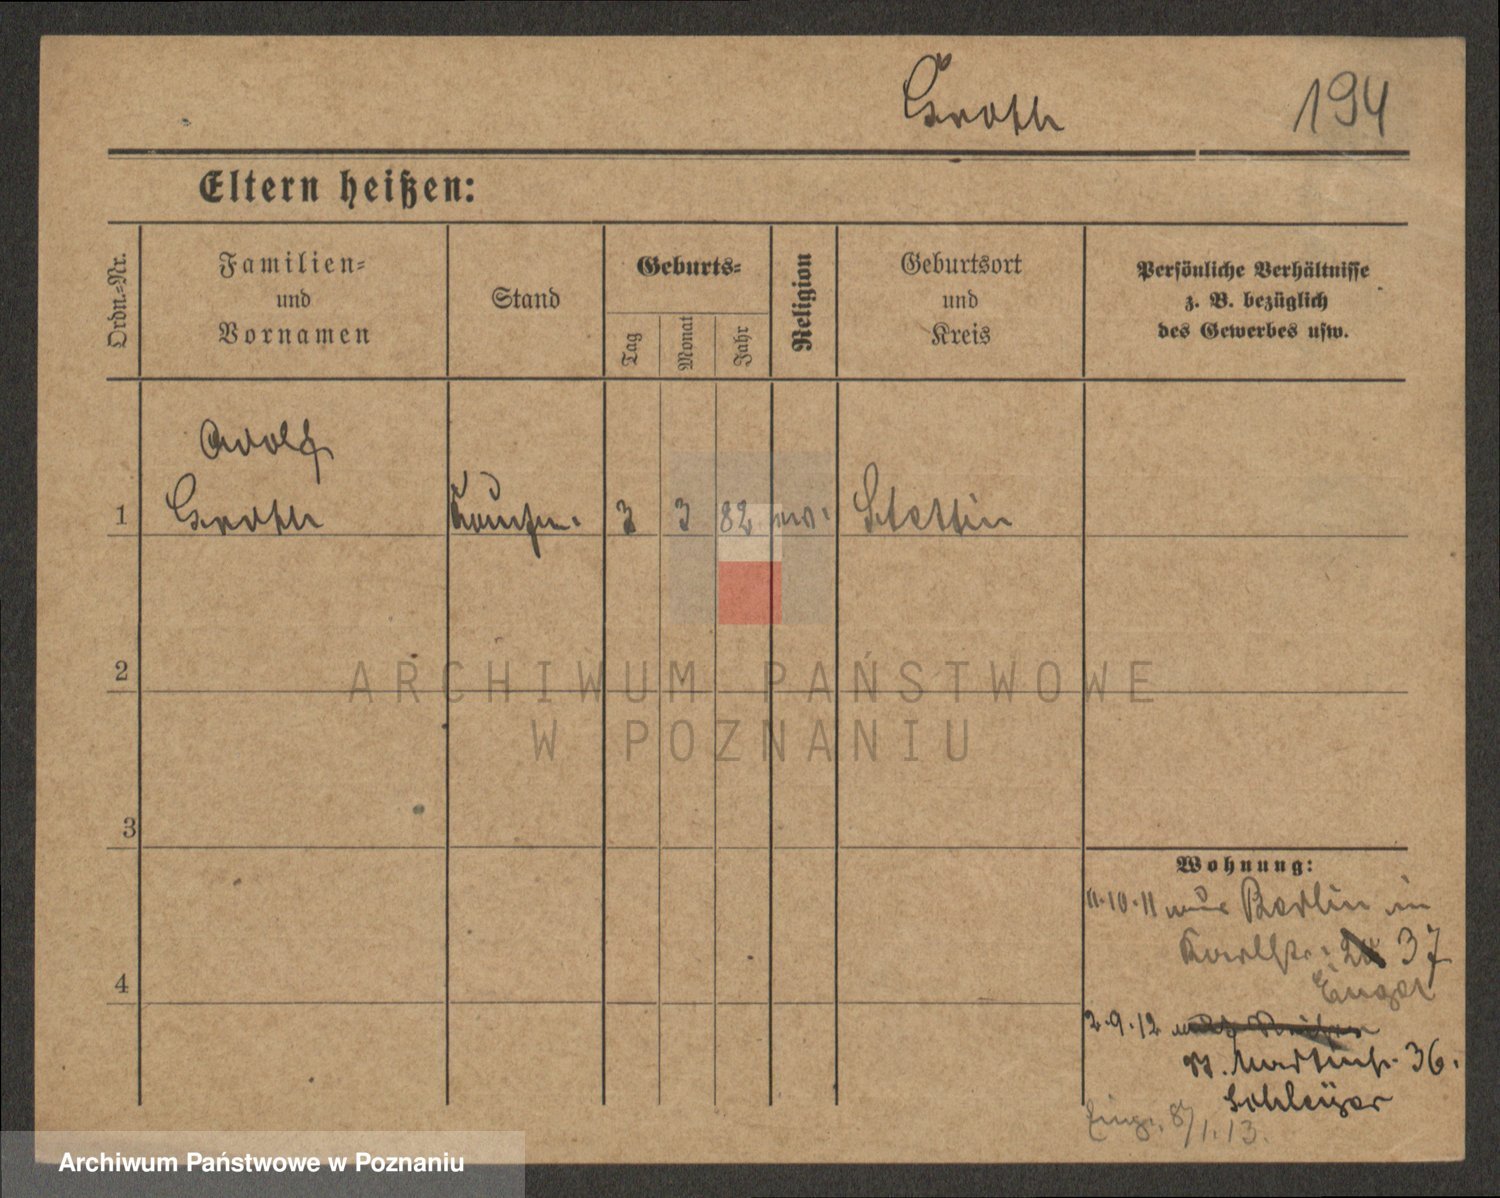 Groth
194
Eltern heißen:
Ordn.-Nr.
Familien-
und
Vornamen
Stand
Geburts-
Tag
Monat
Jahr
Religion
Geburtsort
und
Kreis
Persönliche Verhältnisse
z. B. bezüglich
des Gewerbes usw.
Adolf
1 Groth Kaufm. 3 3 82 ev. Stettin
2
3
4
ARCHIWUM PAŃSTWOWE
W POZNANIU
Wohnung:
11.10.11 aus Berlin in
Karlstr. 37
Unger
2.9.12
St. Martinstr. 36.
Schleyer
8/1.13.
Archiwum Państwowe w Poznaniu